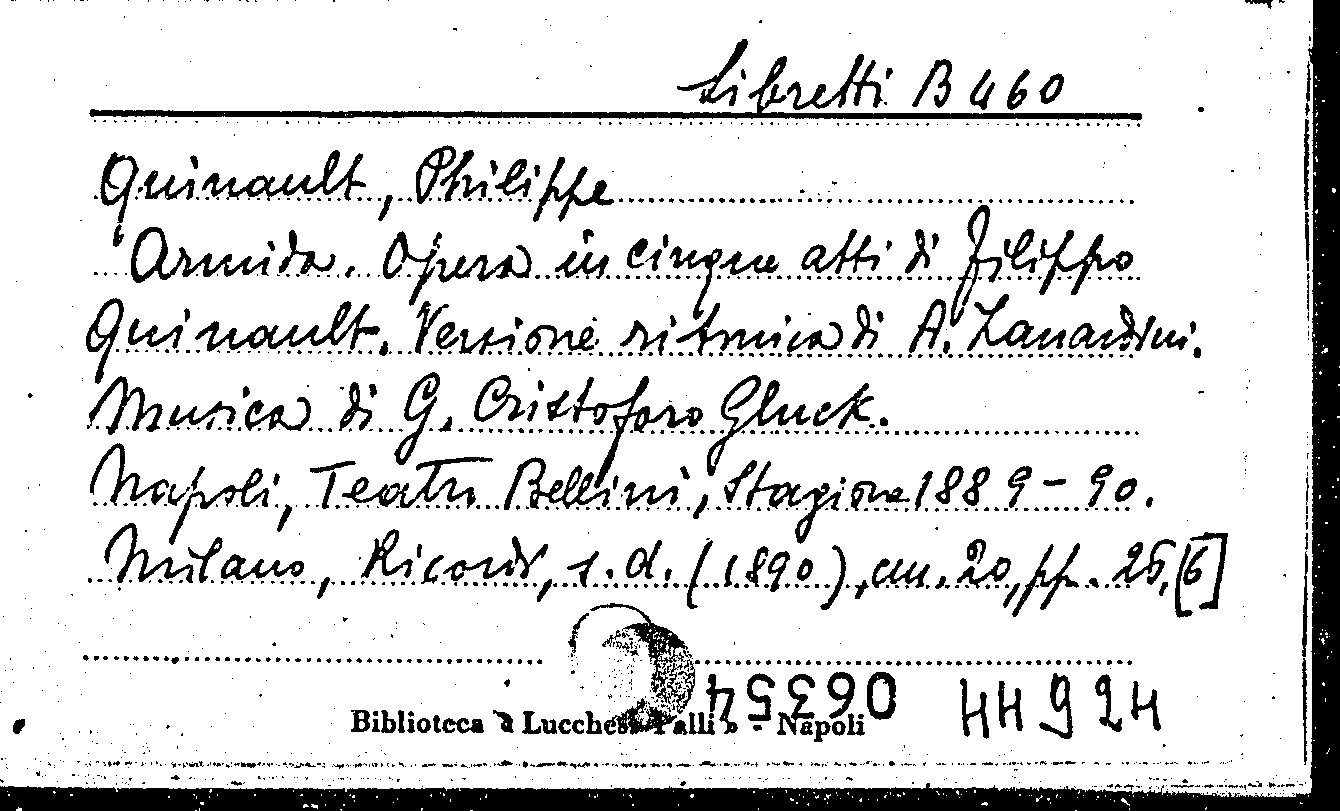 Libretti B 460
Quinault, Philippe
"Armida. Opera in cinque atti di Filippo
Quinault. Versione ritmica di A. Zanardini.
Musica di G. Cristoforo Gluck.
Napoli, Teatro Bellini, Stagione 1889-90.
Milano, Ricordi, s.d. (1890), cm. 20, pp. 25, [6]
Biblioteca « Lucchesi Palli » - Napoli
063354